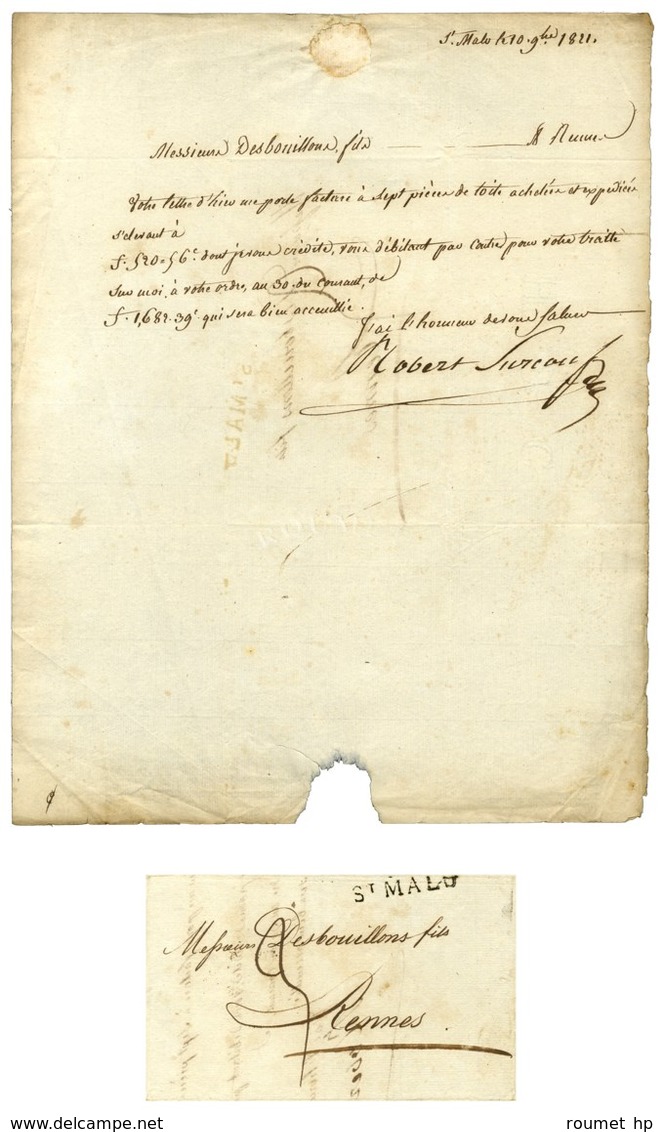 St. Malo le 10. 9bre 1821.
Messieurs Desbouillons, fils à Rennes
Votre lettre d'hier me porte facture à sept pièces de toile achetées et expédiées
s'elevant à
f. 520-56c. dont je vous crédite, vous débitant par contre pour votre traite
sur moi, à votre ordre, au 30. du courant, de
f. 1,682-39c. qui sera bien accueillie.
J'ai l'honneur de vous saluer
Robert Surcouf
ST MALO
ST MALO
Messieurs Desbouillons fils
Rennes.
roumet hp